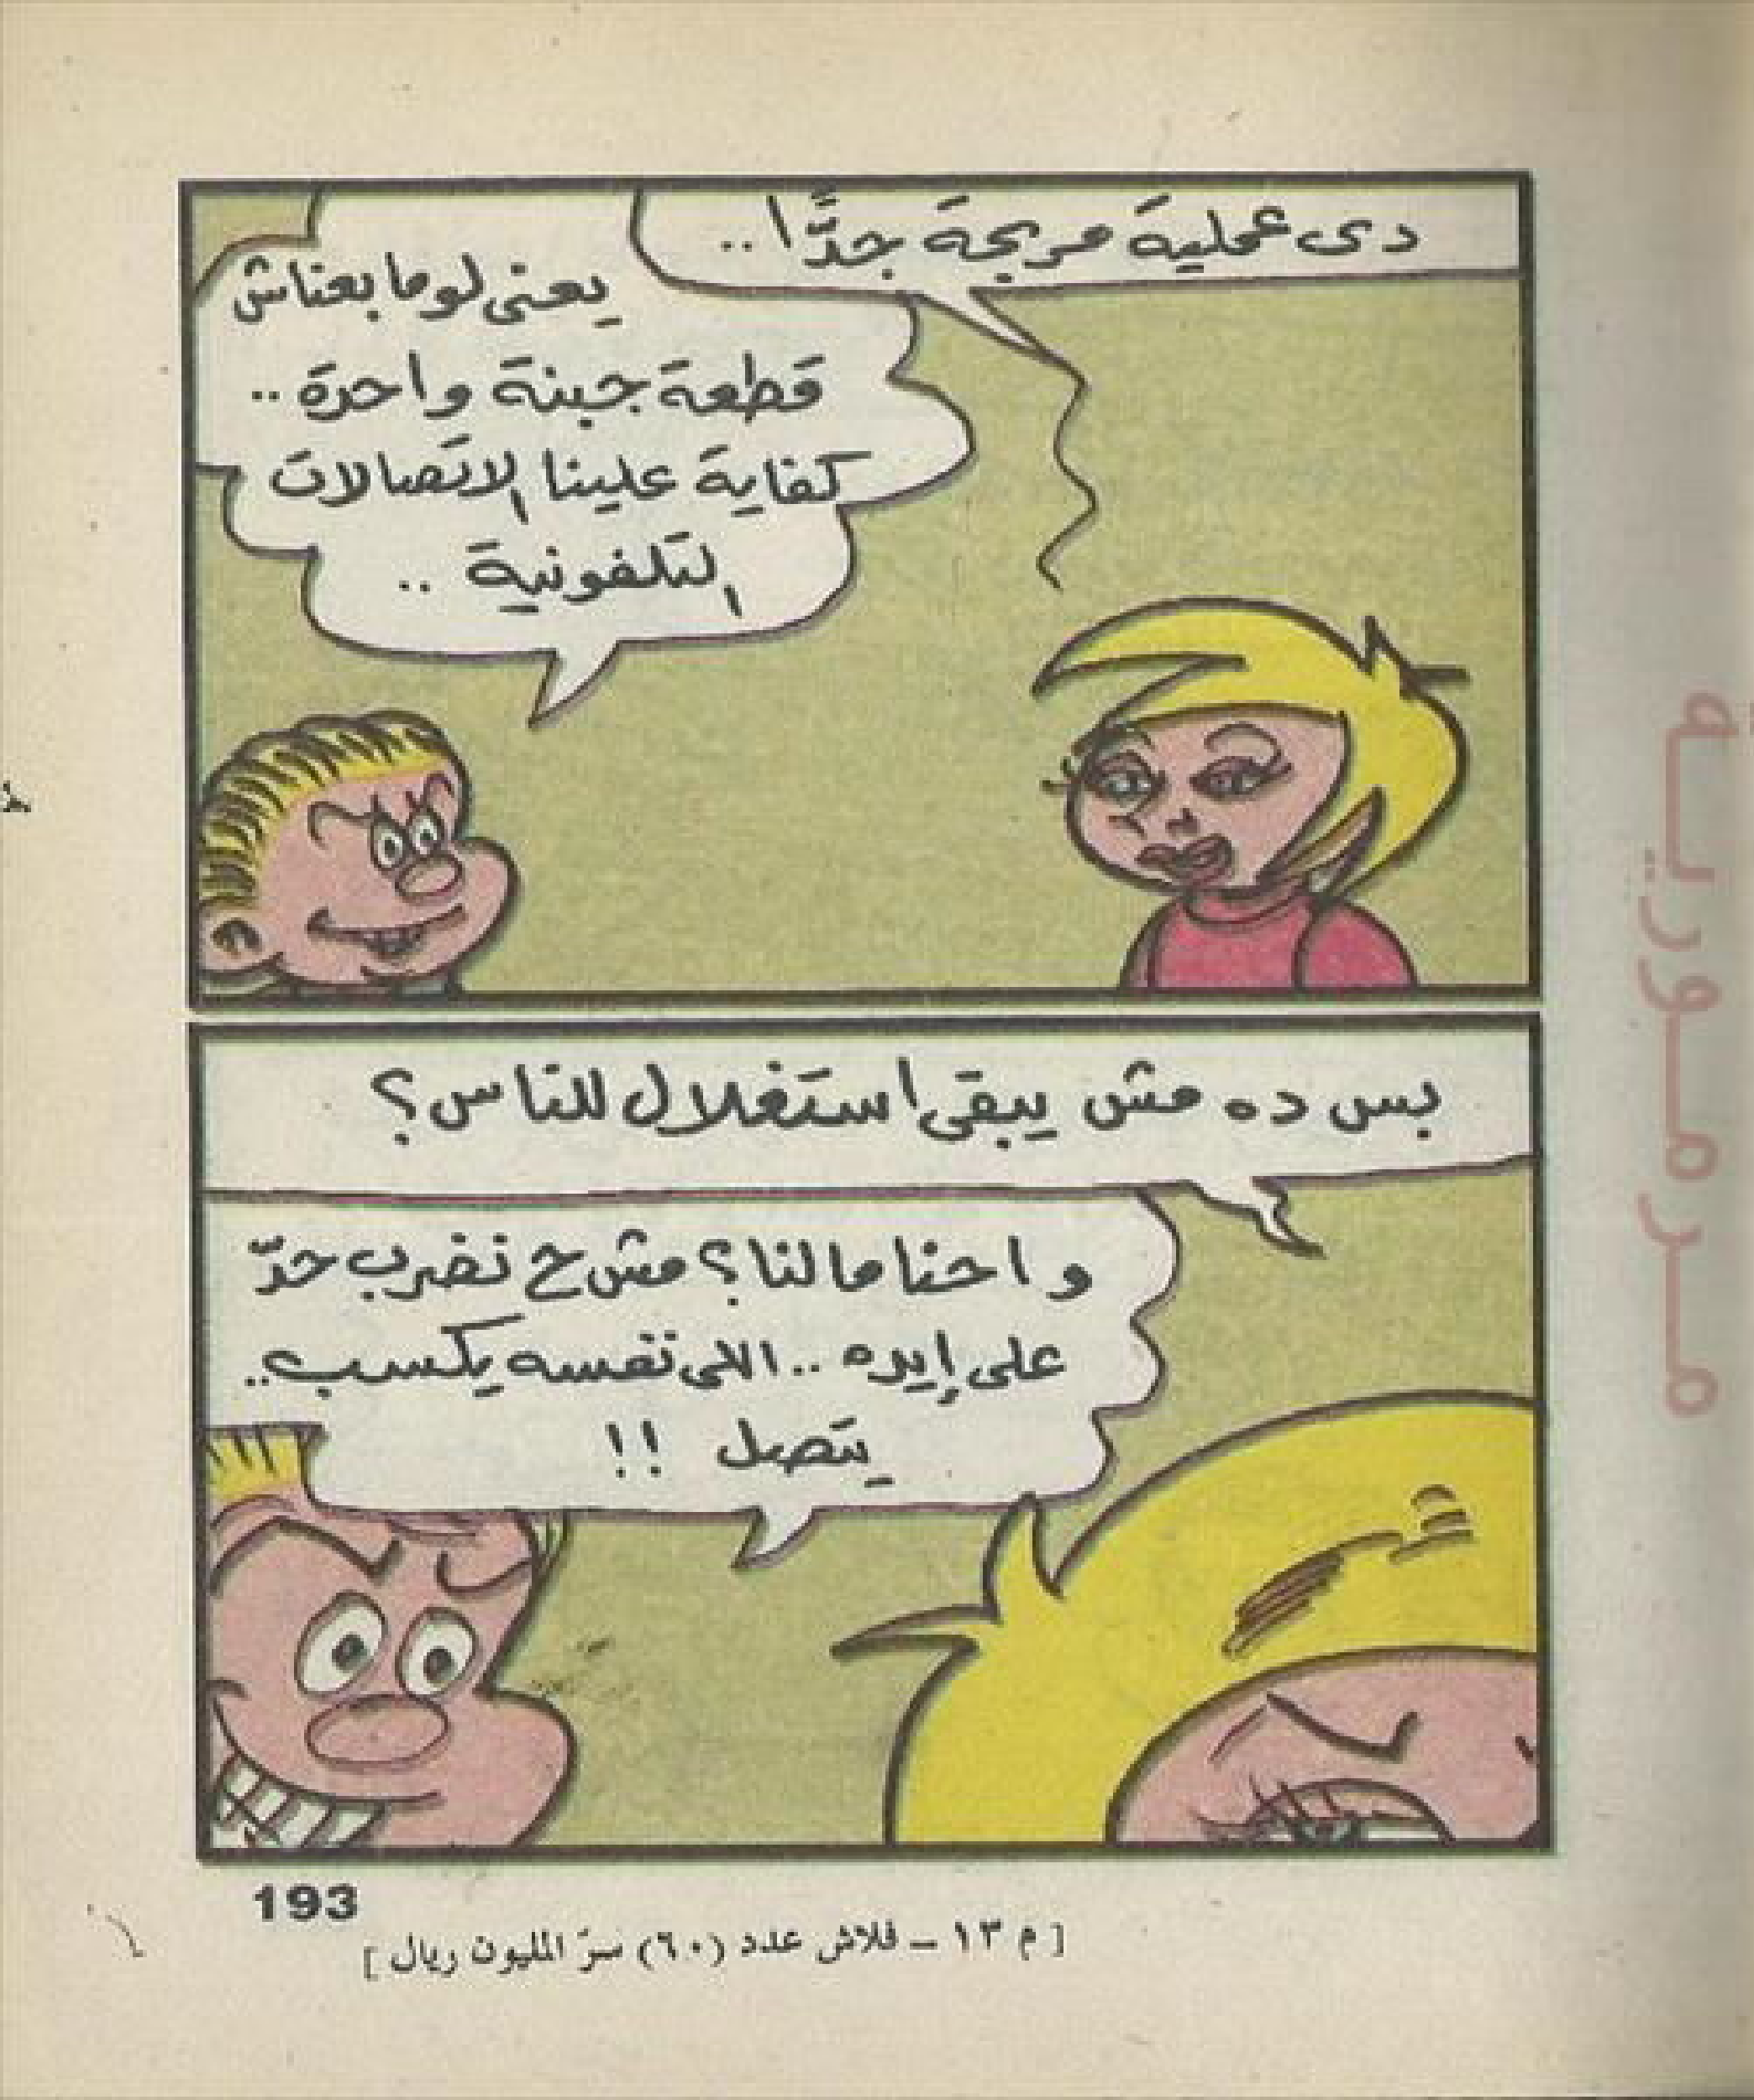 دى عملية مربحة جدًّا ..
يعنى لو ما بعناش
قطعة جبنة واحدة ..
كفاية علينا الاتصالات
التلفونية ..
بس ده مش يبقى استغلال للناس؟
واحنا مالنا؟ مش ح نضرب حدّ
على إيده .. اللى نفسه يكسب ..
يتصل !!
193
[ م ١٣ – فلاش عدد (٦٠) سرّ المليون ريال ]
مـرمـوريـة